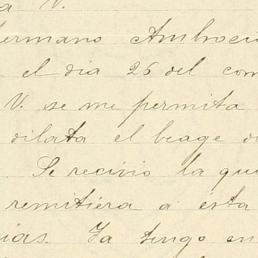 a V.
Hermano Ambrocio
el dia 26 del com
V. se me permita
dilata el beage d
. Se recivio la qu
remitiera a esta
ias. Ya tengo en